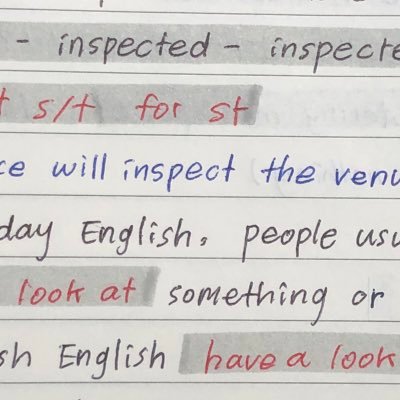 - inspected - inspecte
t s/t for st
ce will inspect the venu
day English, people usu
look at something or
sh English have a look